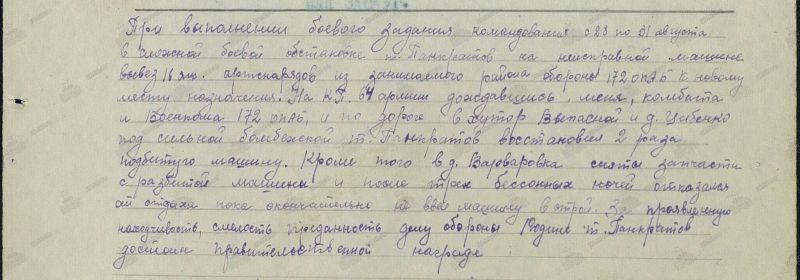 ИЛИ ЗАСЛУГ.
При выполнении боевого задания командования с 28 по 31 августа
в сложной боевой обстановке т. Панкратов на неисправной машине
вывез 16 ящ. артснарядов из занимаемого района обороны 172 опаб к новому
месту назначения. На КП 64 армии дождавшись, меня, комбата
и Военкома 172 опаб, и по дороге в хутор Выпасной и д. Цибенко
под сильной бомбежской т. Панкратов восстановил 2 раза
подбитую машину. Кроме того в д. Варваровка сняты запчасти
с разбитой машины и после трех бессонных ночей отказался
от отдыха пока окончательно не ввел машину в строй. За проявленную
находчивость, смелость преданность делу обороны Родине т. Панкратов
достоин правительственной награде